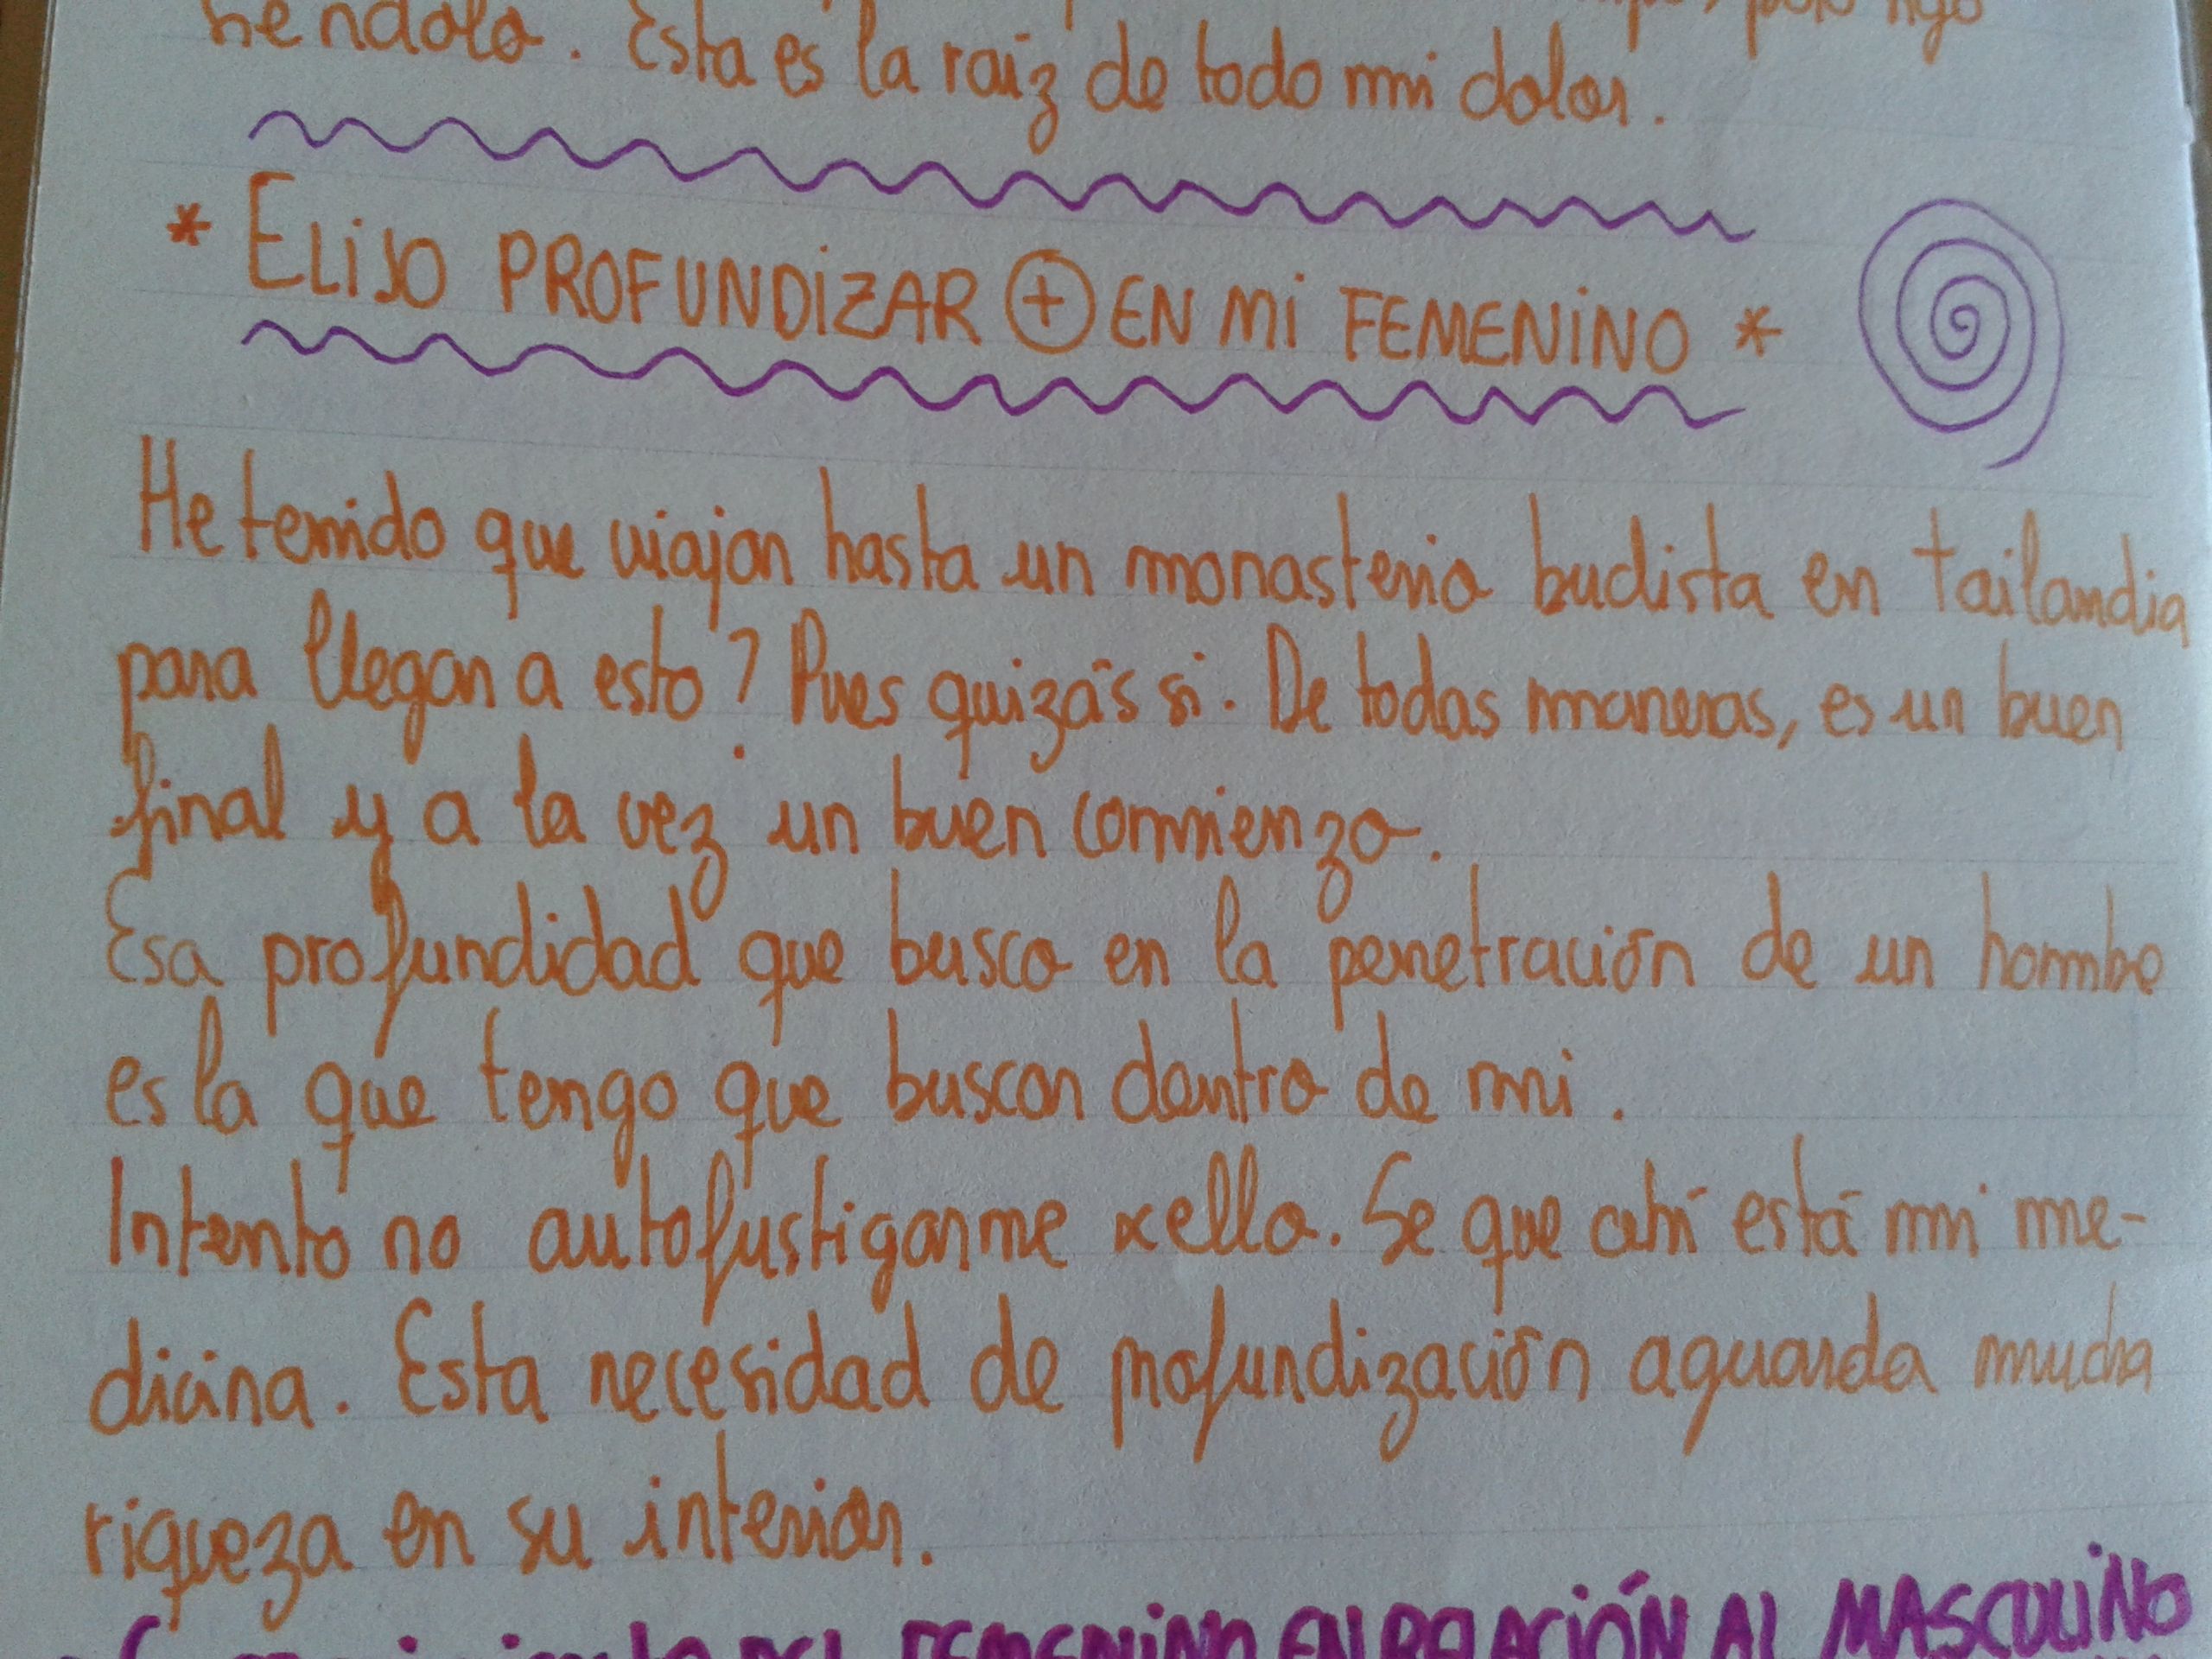 niéndolo. Esta es la raíz de todo mi dolor.
* ELIJO PROFUNDIZAR + EN MI FEMENINO *
He tenido que viajar hasta un monasterio budista en tailandia
para llegar a esto? Pues quizás si. De todas maneras, es un buen
final y a la vez un buen comienzo.
Esa profundidad que busco en la penetración de un hombe
es la que tengo que buscar dentro de mi.
Intento no autofustigarme xello. Se que ahí está mi me-
dicina. Esta necesidad de profundización aguarda mucha
riqueza en su interior.
DEL FEMENINO EN RELACIÓN AL MASCULINO